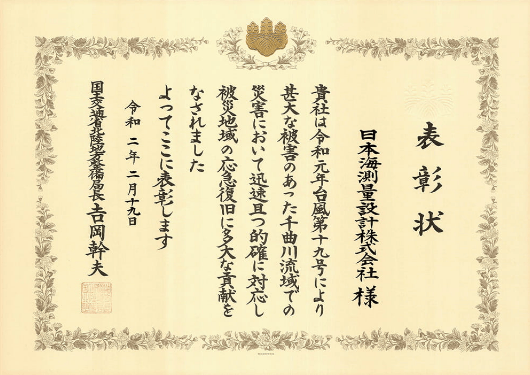 表彰状
日本海測量設計株式会社 様
貴社は令和元年台風第十九号により
甚大な被害のあった千曲川流域での
災害において迅速且つ的確に対応し
被災地域の応急復旧に多大な貢献を
なされました
よってここに表彰します
令和二年二月十九日
国土交通省北陸地方整備局長 吉岡幹夫